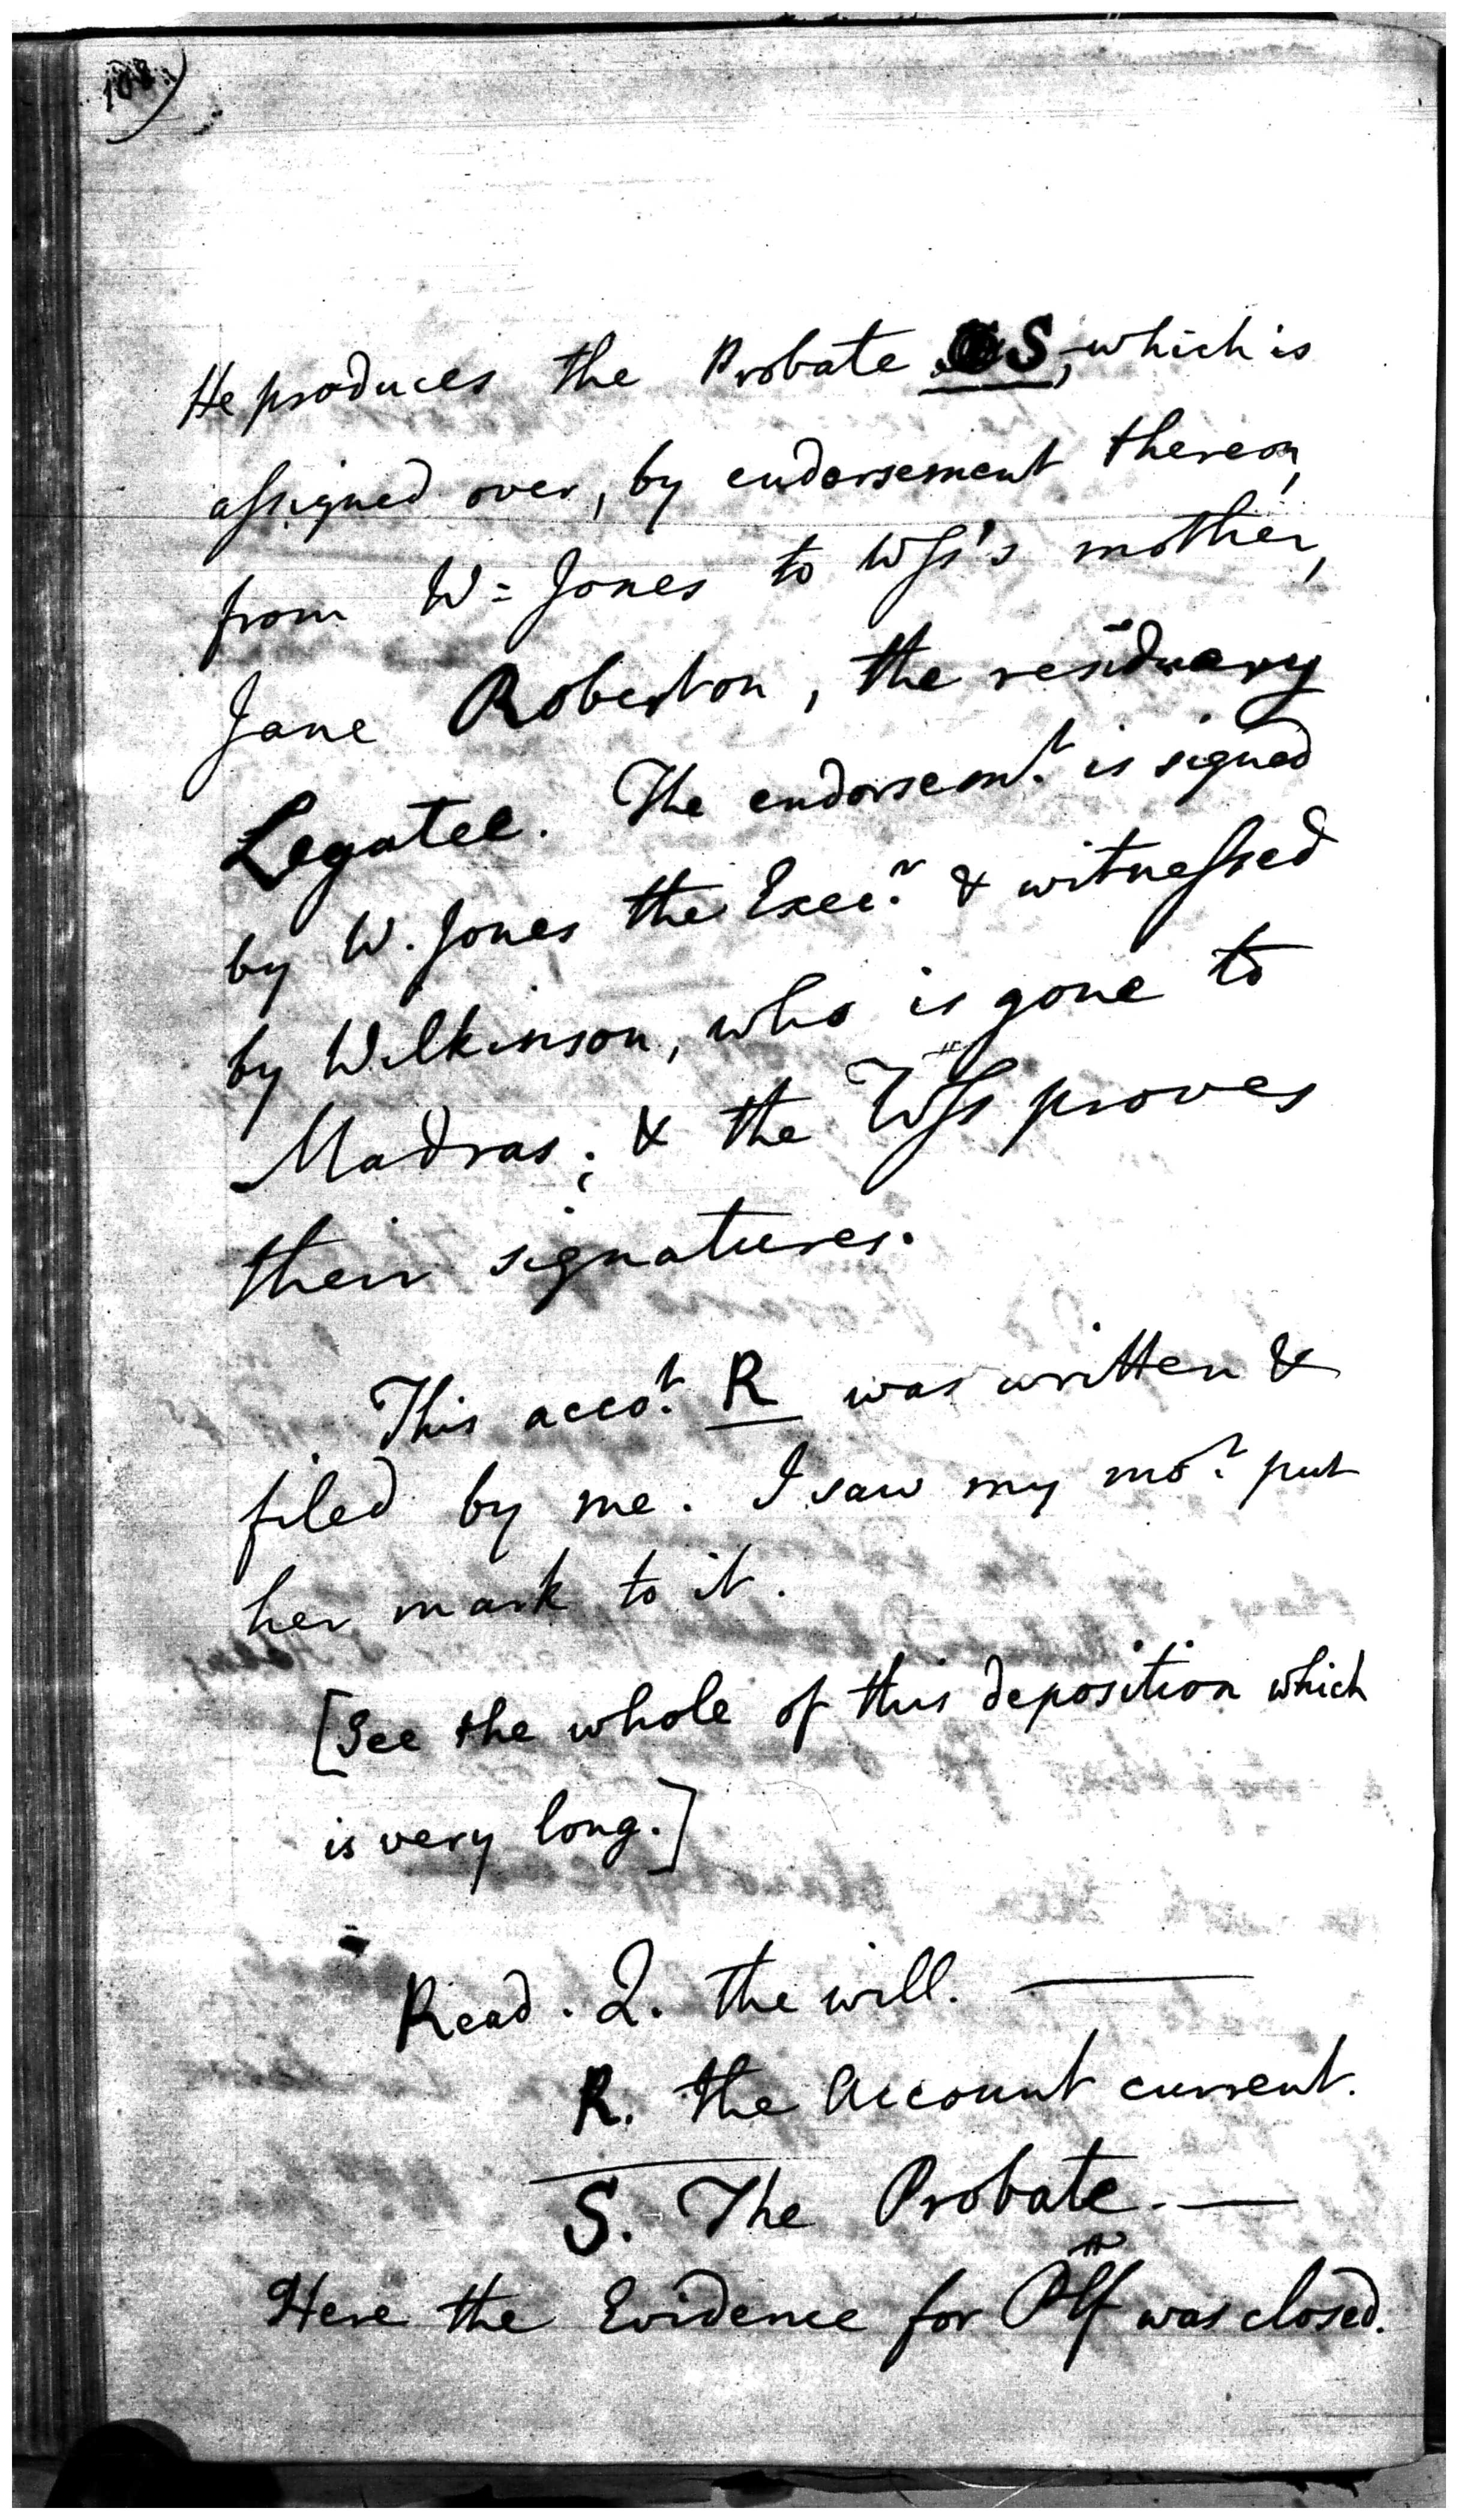 He produces the Probate S, which is
assigned over, by endorsement thereon,
from W= Jones to Wss's mother,
Jane Roberton, the residuary
Legatee. The endorsemt. is signed
by W. Jones the Execr. & witnessed
by Wilkinson, who is gone to
Madras; & the Wss proves
their signatures.
This accot. R was written &
filed by me. I saw my mor. put
her mark to it.
[See the whole of this deposition which
is very long.]
Read. Q. the will. —
R. the Account current.
S. The Probate. —
Here the Evidence for Plff was closed.